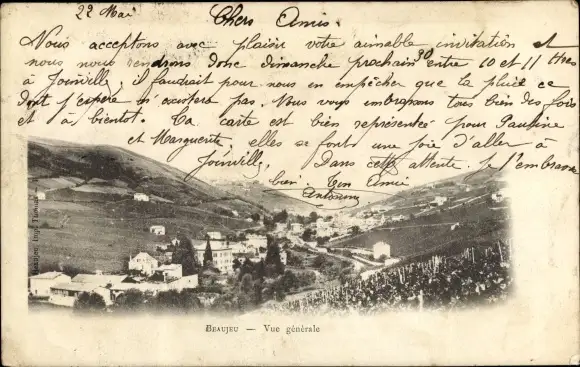 22 Mai
Chers Amis.
Nous acceptons avec plaisir votre aimable invitation et
nous nous rendrons donc dimanche prochain 30 entre 10 et 11 Hres
à Joinville, il faudrait pour nous en empêcher que la pluie ce
dont j'espère n'existera pas. Nous vous embrassons tous bien des fois
et à bientôt. Ta carte est bien représentée pour Pauline
et Marguerite, elles se font une joie d'aller à
Joinville. Dans cette attente. Je t'embrasse
bien Ton Amie
BEAUJEU — Vue générale